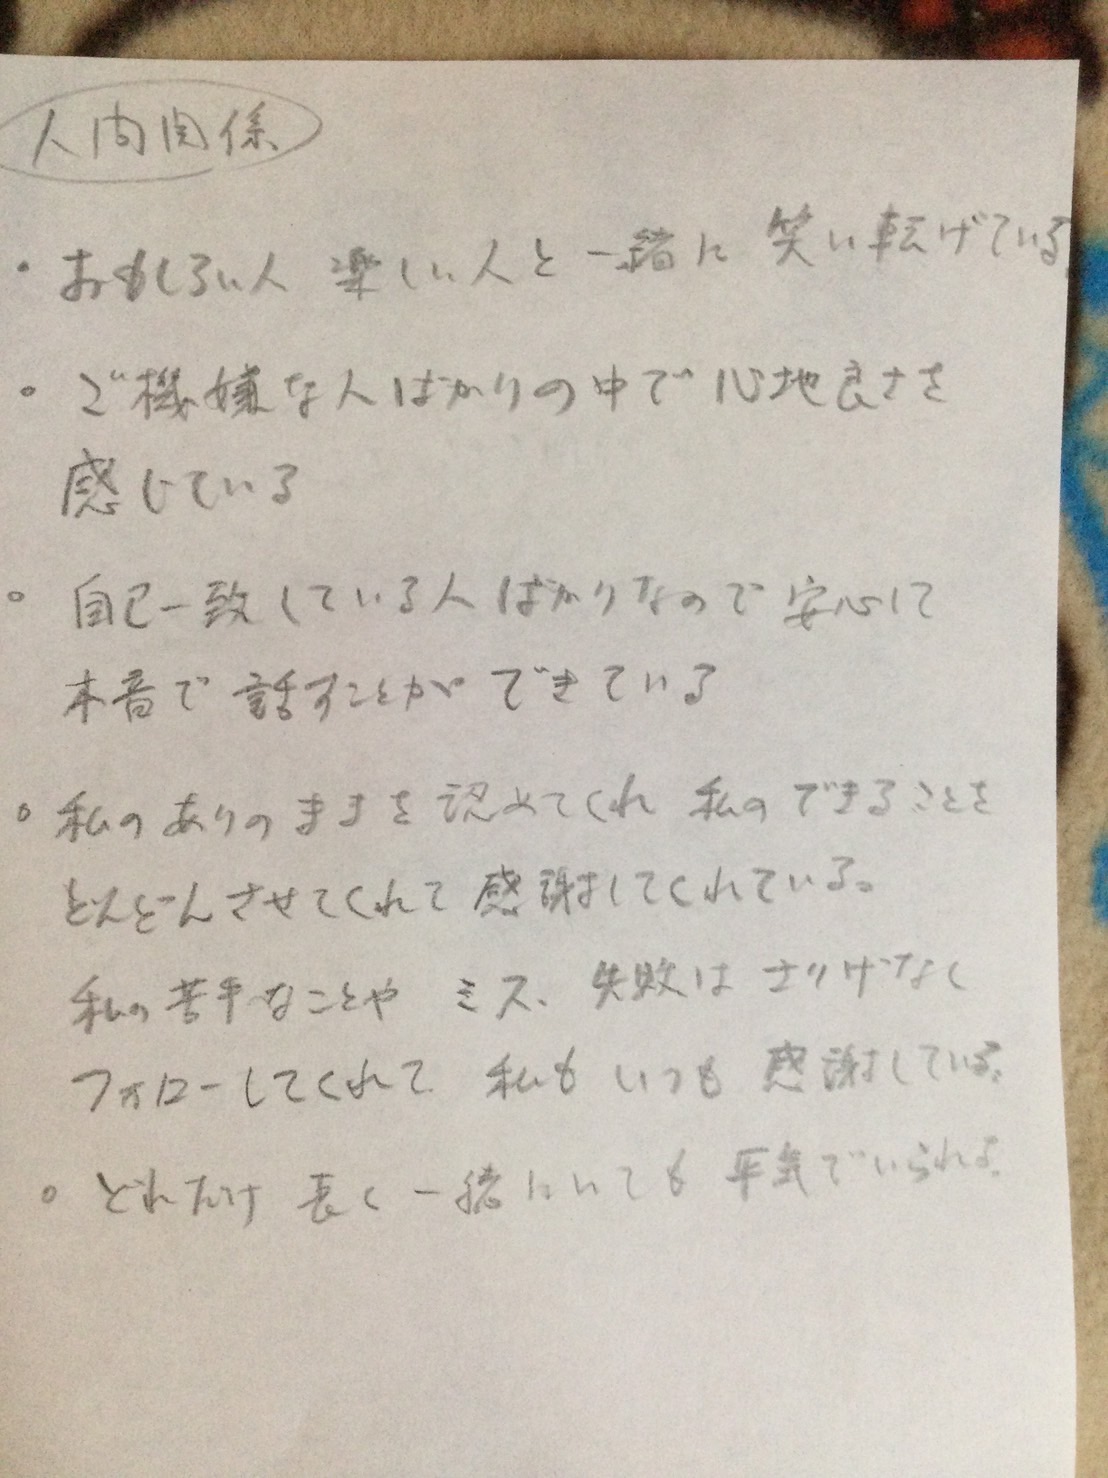 人間関係
・おもしろい人 楽しい人と一緒に 笑い転げている。
○ ご機嫌な人ばかりの中で 心地良さを
感じている
○ 自己一致している人ばかりなので 安心して
本音で 話すことが できている
○ 私のありのままを認めてくれ 私のできることを
どんどんさせてくれて 感謝してくれている。
私の苦手なことや ミス、失敗は さりげなく
フォローしてくれて 私も いつも 感謝している。
○ どれだけ 長く 一緒にいても 平気でいられる。